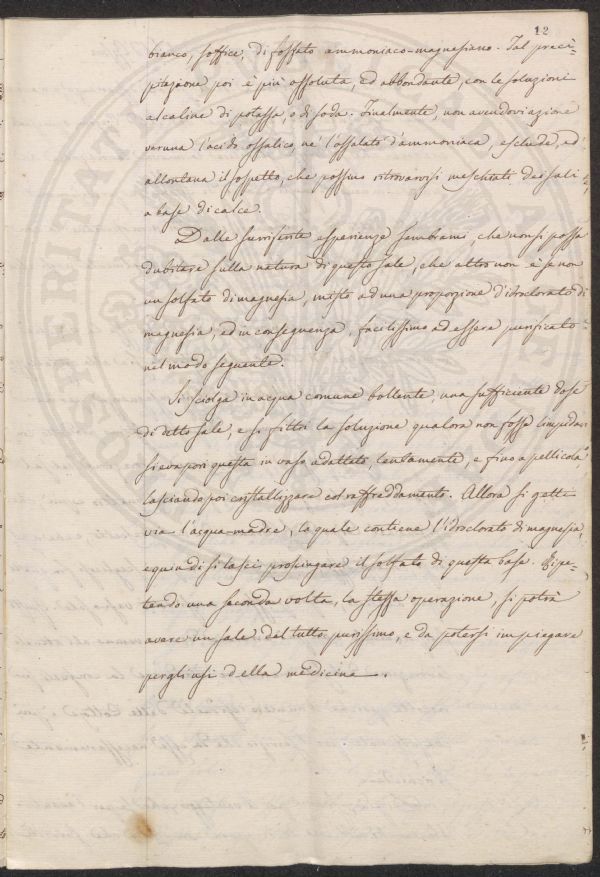 12
bianco, soffice, di fosfato ammoniaco-magnesiano. Tal preci=
pitazione poi è più assoluta, ed abbondante, con le soluzioni
alcaline di potassa, o di soda. Finalmente, non avendovi azione
veruna l'acido ossalico, nè l'ossalato d'ammoniaca, esclude, ed
allontana il sospetto, che possino ritrovarvisi meschiati dei sali
a base di calce.
Dalle surriferite esperienze sembrami, che non si possa
dubitare sulla natura di questo sale, che altro non è se non
un solfato di magnesia, misto ad una proporzione d'idroclorato di
magnesia, ed in conseguenza, facilissimo ad essere purificato
nel modo seguente.
Si sciolga in acqua comune bollente, una sufficiente dose
di detto sale, e si filtri la soluzione qualora non fosse limpida:
si evapori questa in vaso adattato, lentamente, e fino a pellicola
lasciando poi cristallizzare col raffreddamento. Allora si getti
via l'acqua-madre, la quale contiene l'idroclorato di magnesia,
e quindi si lasci prosciugare il solfato di questa base. Ripe=
tendo una seconda volta, la stessa operazione, si potrà
avere un sale del tutto purissimo, e da potersi impiegare
pergli usi della medicina.